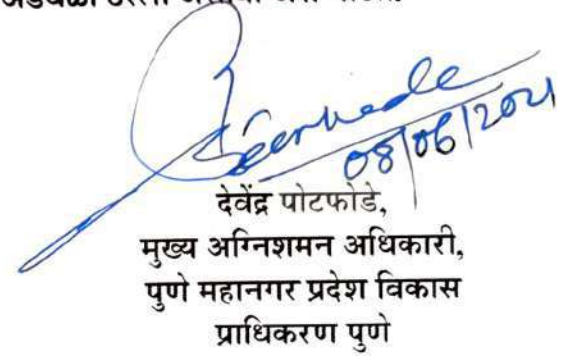 08/06/2021
देवेंद्र पोटफोडे,
मुख्य अग्निशमन अधिकारी,
पुणे महानगर प्रदेश विकास
प्राधिकरण पुणे